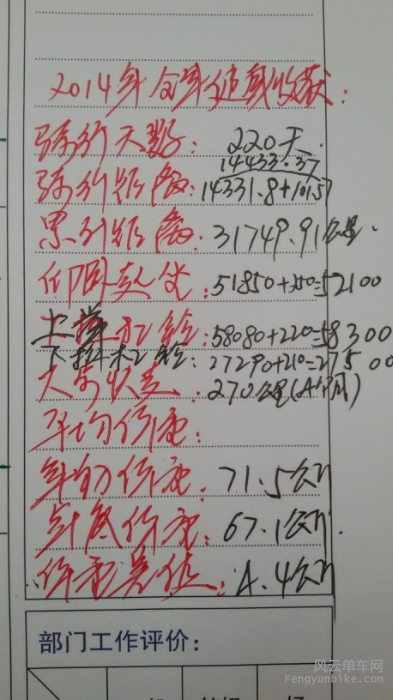 2014年全年健身收获：
骑行天数：220天.
14433.37
骑行距离：14331.8+101.57
累计距离：31749.91公里.
仰卧起坐：51850+250=52100
上举杠铃：58080+220=58300
下拉杠铃：27290+210=27500
270公里(
平均体重：
年初体重：71.5公斤
年底体重：67.1公斤.
体重差值：4.4公斤
部门工作评价：
风云单车网
Fengyunbike.com